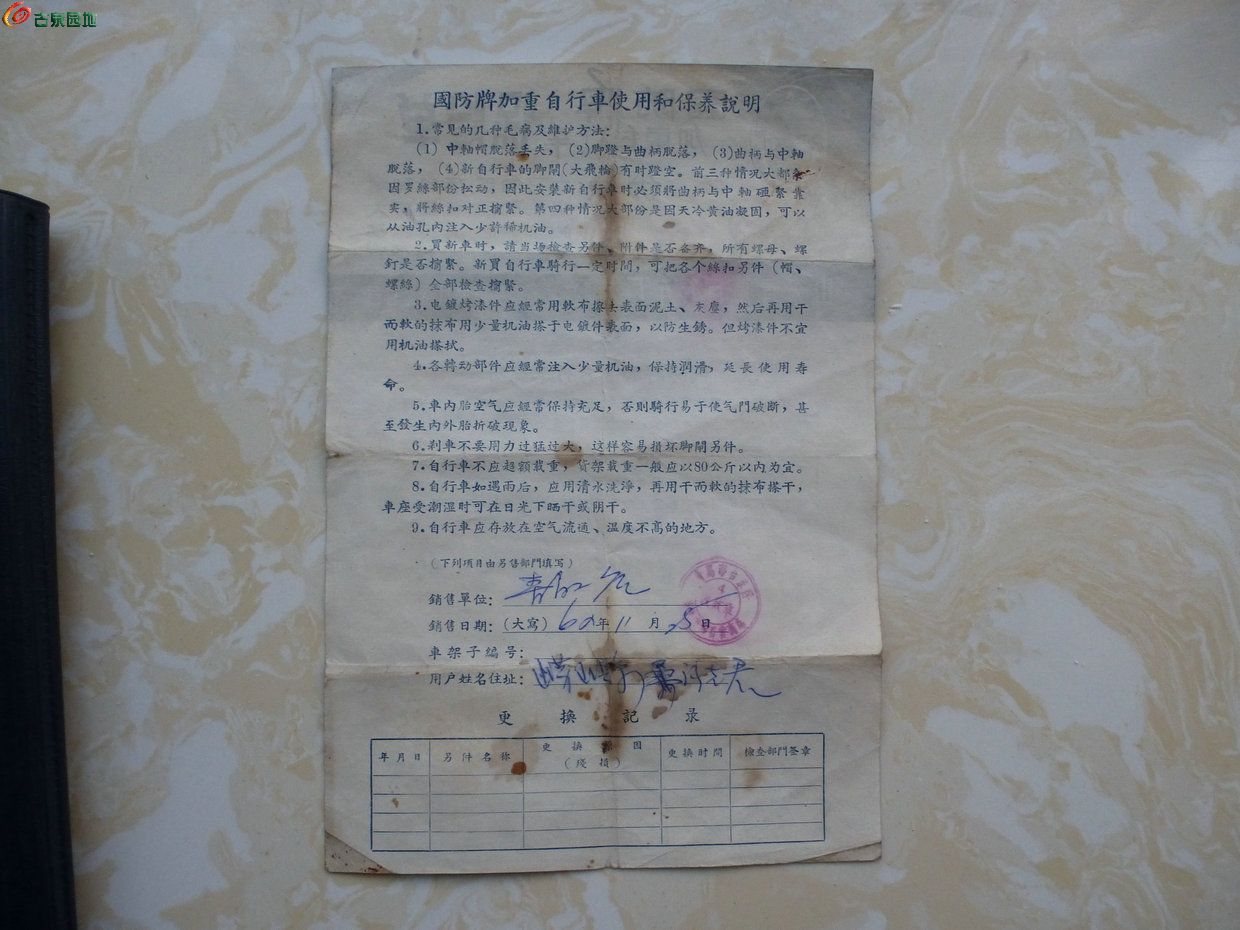 古泉园地
國防牌加重自行車使用和保养說明
1.常見的几种毛病及維护方法:
(1) 中軸帽脫落丢失, (2)脚蹬与曲柄脫落, (3)曲柄与中軸
脫落, (4)新自行車的脚閘(大飛輪)有时蹬空。前三种情况大部份
因罗絲部份松动, 因此安装新自行車时必須將曲柄与中軸砸緊靠
实, 將絲扣对正擰緊。第四种情况大部份是因天冷黄油凝固, 可以
从油孔內注入少許稀机油。
2.買新車时, 請当场檢查另件、附件是否齐齐, 所有螺母、螺
釘是否擰緊。新買自行車騎行一定时間, 可把各个絲扣另件 (帽、
螺絲) 全部檢查擰緊。
3.电鍍烤漆件应經常用軟布擦去表面泥土、灰塵, 然后再用干
而軟的抹布用少量机油搽于电鍍件表面, 以防生銹。但烤漆件不宜
用机油搽拭。
4.各轉动部件应經常注入少量机油, 保持潤滑, 延長使用寿
命。
5.車內胎空气应經常保持充足, 否則騎行易于使气門破断, 甚
至發生內外胎折破現象。
6.刹車不要用力过猛过大, 这样容易損坏脚閘另件。
7.自行車不应超額載重, 货架載重一般应以80公斤以內为宜。
8.自行車如遇雨后, 应用清水洗淨, 再用干而軟的抹布搽干,
車座受潮湿时可在日光下晒干或阴干。
9.自行車应存放在空气流通、温度不高的地方。
(下列項目由另售部門填写)
銷售單位:
銷售日期: (大寫) 年 11 月 日
車架子編号:
用户姓名住址:
更換記录
年月日 另件名称 更換原因 (殘損) 更換时間 檢查部門签章